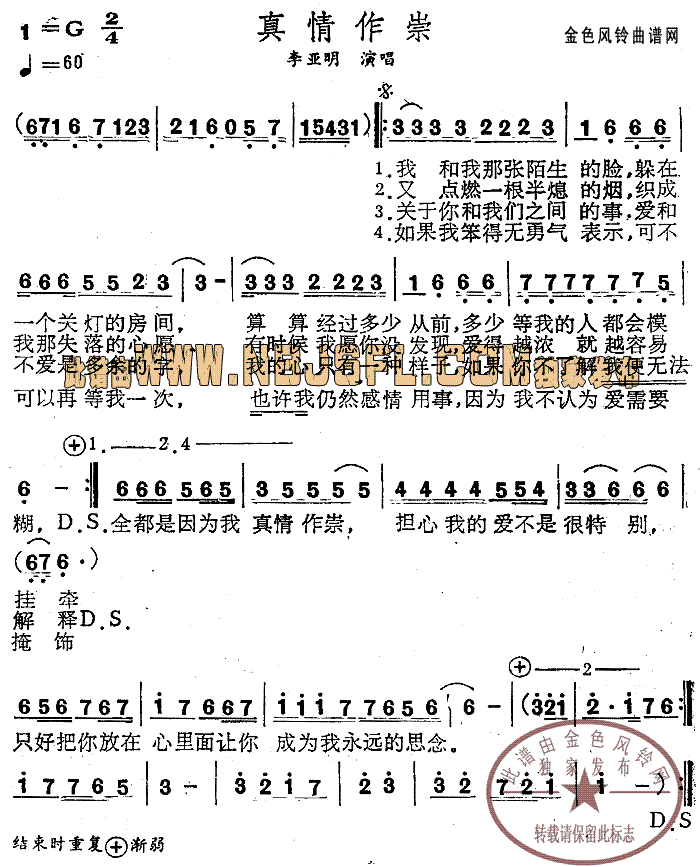 1=G 2/4
真情作祟
♩=60
李亚明 演唱
金色风铃曲谱网
(6716 7123 | 21605 7 | 15431) ‖: 3333 2223 | 1 6 6 6 |
1.我 和我那张陌生 的脸,躲在
2.又 点燃一根半熄 的烟,织成
3.关于你和我们之间 的事,爱和
4.如果我笨得无勇气 表示,可不
666 5523 | 3- | 333 2223 | 1 6 6 6 | 7777775 |
一个关 灯的房 间, 算 算 经过多少 从前,多少 等我的人 都会模
我那失 落的心 愿, 有时候 我愿你没 发现,爱得 越浓 就 越容易
不爱是 多余的 字, 我的心 只有一种 样子,如果 你不了解 我便无法
可以再 等我一 次, 也许我 仍然感情 用事,因为 我不认为 爱需要
WWW.NBJGFL.COM 独家发布
⊕1. 2.4
6 - :‖ 666 6 565 | 3 5555 | 4444 4 554 | 33 66 6 |
糊, D.S.全都是因为我 真情 作祟, 担心 我的 爱不是 很特 别,
(67 6·)
挂 牵
解 释D.S.
掩 饰
⊕ 2
656 767 | i 7 667 | i i i 7 7656 | 6 - | (32i | 2·i76:‖
只好把你放在 心里面让你 成为我永远的思念。
i 7765 | 3 - | 3 2i7i | 2 3 | 32 72i | i -) :‖
D.S
结束时重复⊕渐弱
此谱由金色风铃网
独家发布
转载请保留此标志